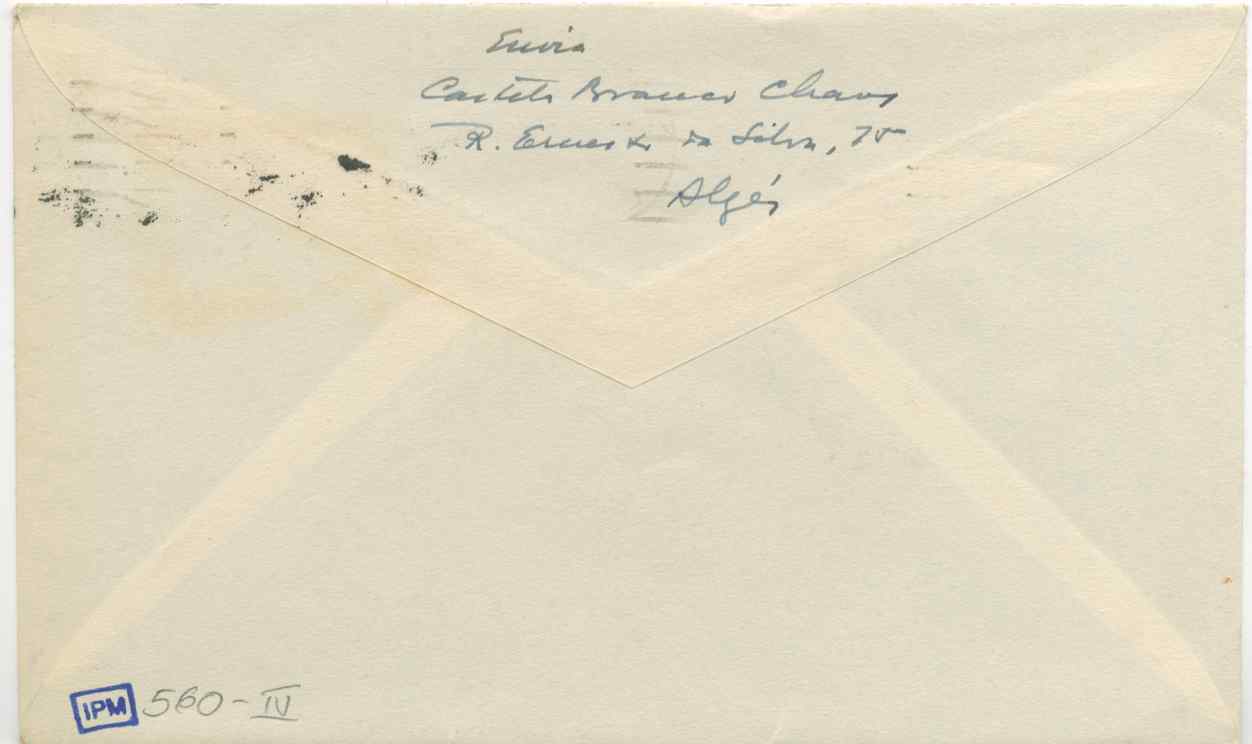 Envia
Castelo Branco Chaves
R. Ernesto da Silva, 75
Algés
IPM 560-IV